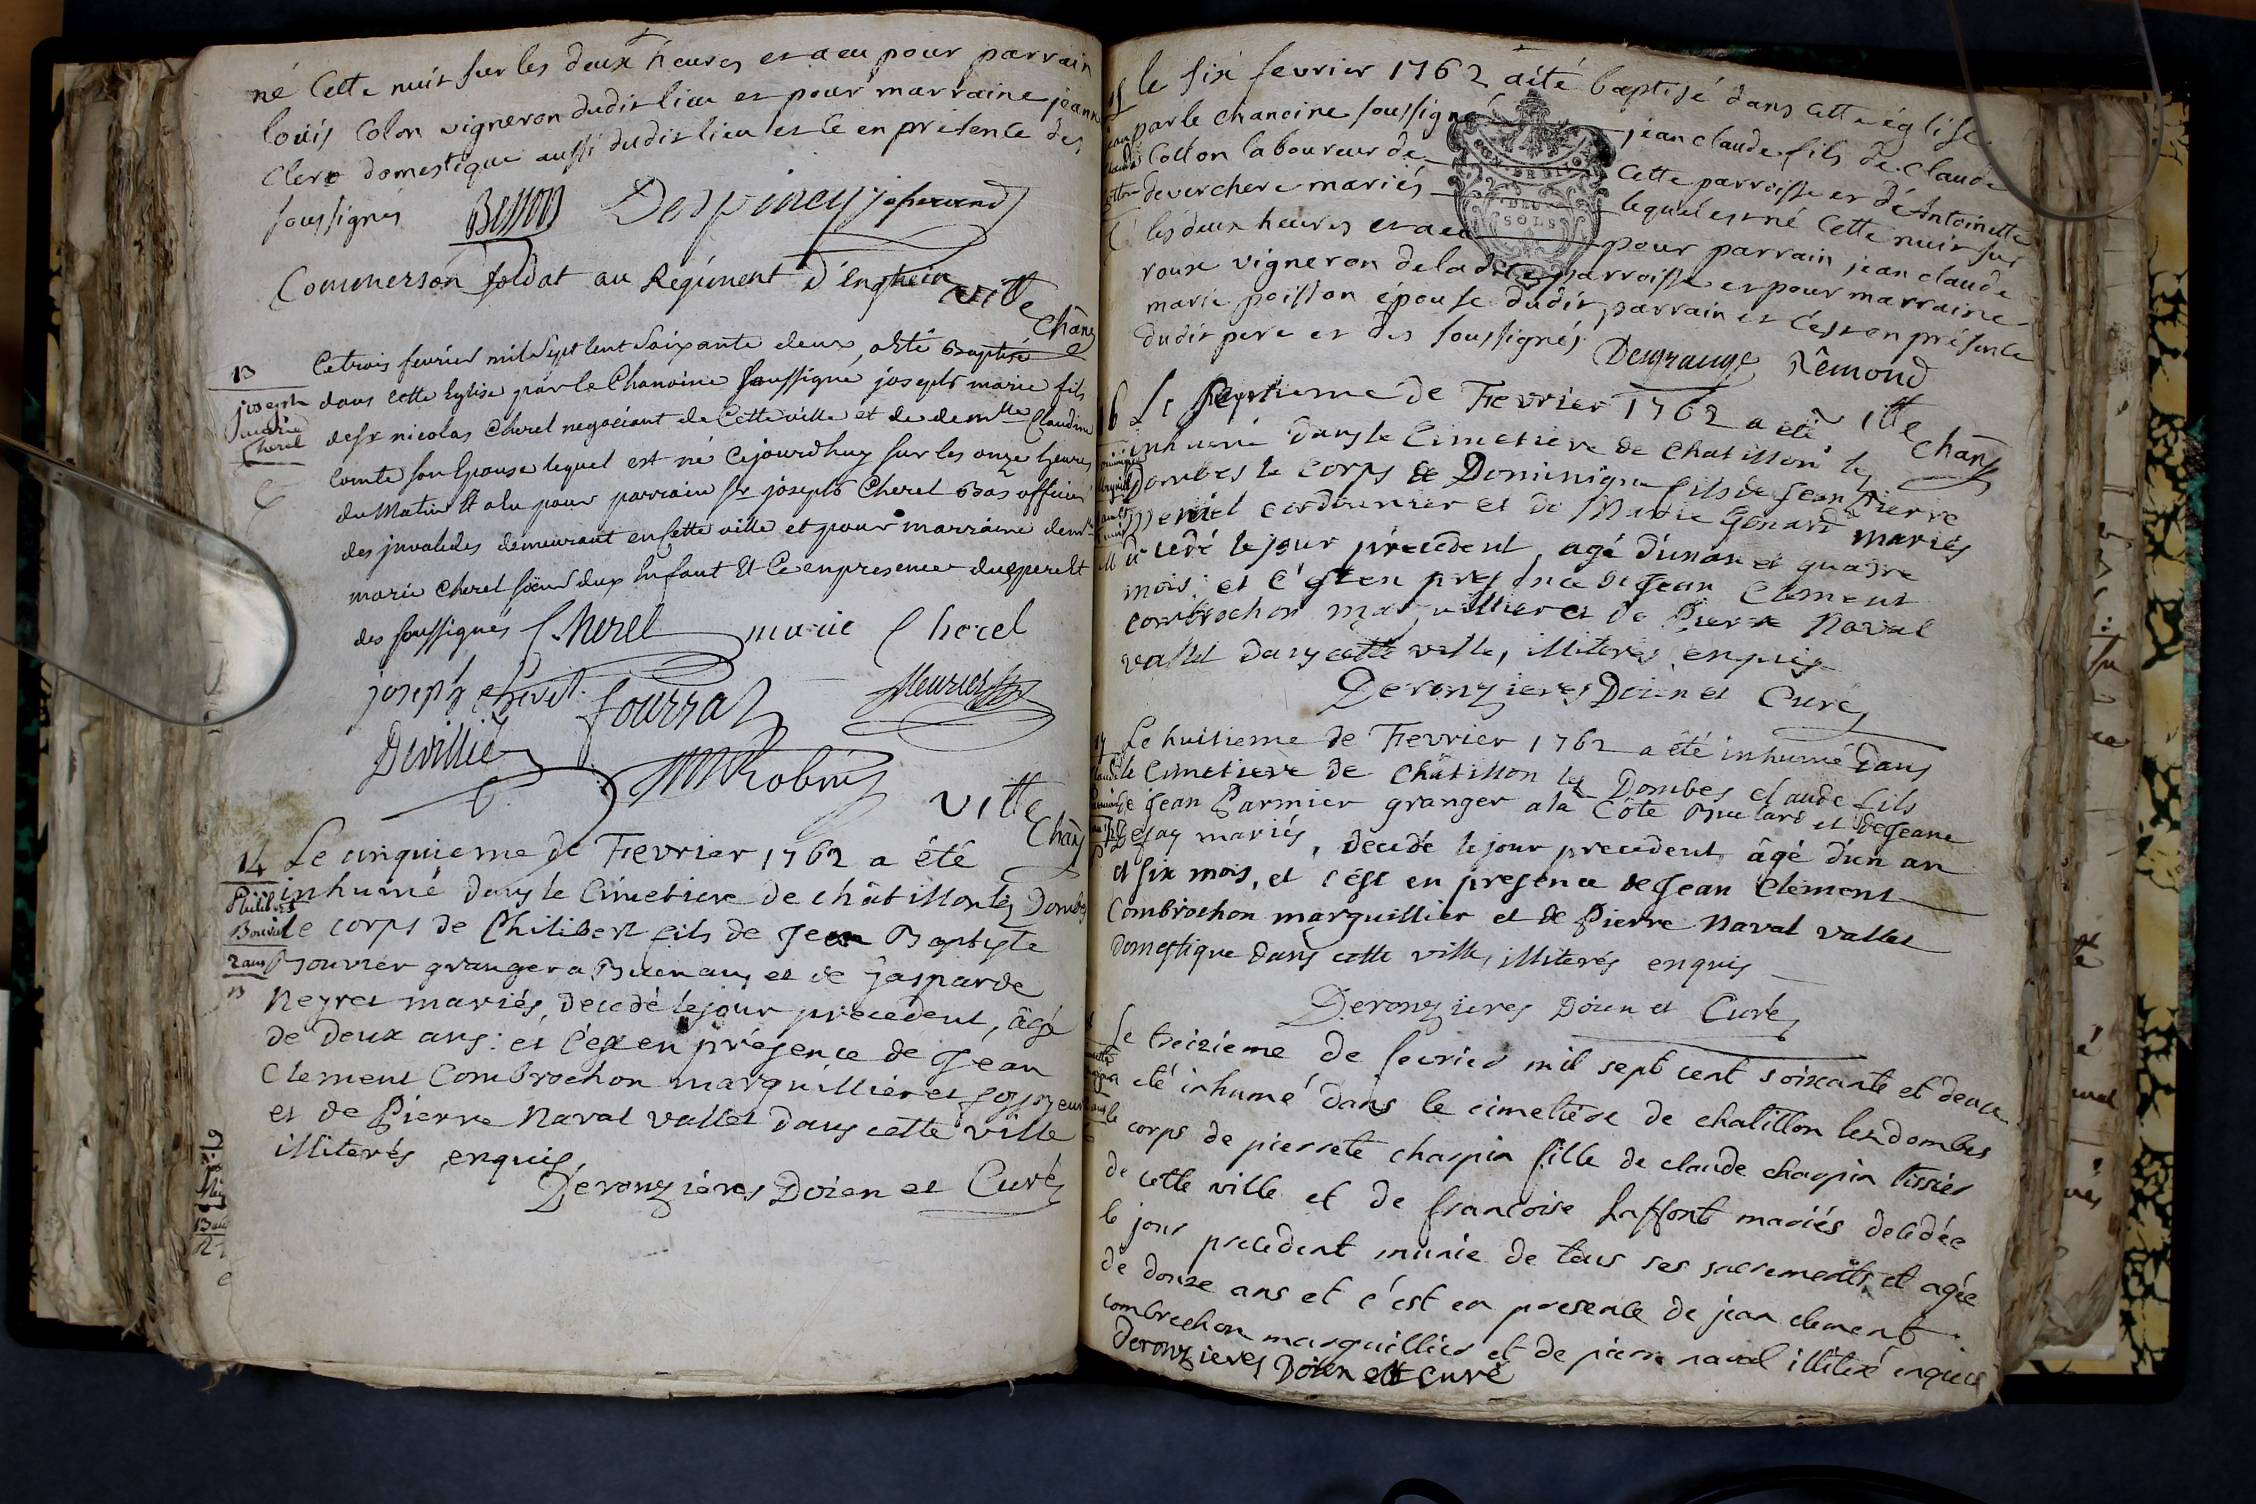 né Cette nuit sur les deux heures et a eu pour parrain
louis Colon vigneron dudit lieu et pour marraine jeanne
Clere domestique aussi dudit lieu et ce en presence des
soussignés Besson Despiney
Commerson soldat au Regiment d'Enghein Vitte
Chane
13
joseph
marie
Cherel
Ce trois fevrier mil sept Cent Soixante deux, a été Baptisé
dans cette Eglise par le Chanoine soussigné joseph marie fils
de sr nicolas Cherel negociant de Cette ville et de demlle Claudine
Comte son Epouse lequel est né Cejourdhuy sur les onze heures
du Matin Et a Eu pour parrain sr joseph Cherel Bas officier
des jnvalides demeurant en Cette ville et pour marraine demlle
marie Cherel sœur dux Enfant Et Ce en presence du pere Et
des soussignés Cherel marie Cherel
joseph cherel fourrat Meurier
Devillie Robin
Vitte
Chane
14
Philibert
Bouvier
2 ans
Le cinquieme de Fievrier 1762 a été
inhumé dans le Cimetiere de châtillon les Dombes
le corps de Philibert fils de Jean Baptiste
Bouvier granger a Buenans et de gasparde
Neyret mariés, decedé le jour precedent, âgé
de deux ans: et c'est en présence de Jean
Clement Combrochon marguillier et fossoyeur
et de Pierre Naval vallet dans cette ville
illiterés enquis
Deronzieres Doien et Curé
le six fevrier 1762 a été baptisé dans cette église
par le chanoine soussigné jean claude fils de claude
Cotton laboureur de Cette parroisse et de Antoinette
deverchere mariés lequel est né Cette nuit sur
les deux heures et a eu pour parrain jean claude
roux vigneron de la dite parroisse et pour marraine
marie poisson épouse dudit parrain et c'est en présence
dudit pere et des soussignés Desgrange Rémond
Vitte
Chane
16
Le septieme de Fievrier 1762 a été
inhumé dans le Cimetiere de Chatillon les
Dombes le corps de Dominique fils de Jean Pierre
cordonnier et de Marie Génard mariés
decedé le jour précedent, agé d'un an et quatre
mois; et c'est en presence de Jean Clement
combrochon marguillier et de Pierre Naval
vallet dans cette ville, illiterés enquis
Deronzieres Doien et Curé
17
Le huitieme de Fievrier 1762 a été inhumé dans
le Cimetiere de Châtillon les Dombes claude fils
de Jean Parmier granger a la Côte Mulard et de Jeane
Defay mariés, decedé le jour precedent âgé d'un an
et six mois, et c'est en presence de Jean Clement
Combrochon marguillier et de Pierre Naval vallet
domestique dans cette ville, illiterés enquis
Deronzieres Doien et Curé
Le treizieme de fevrier mil sept cent soixante et deux
a eté inhumé dans le cimetiere de chatillon les dombes
le corps de pierrete charpin fille de claude charpin tissier
de cette ville et de francoise Laffont mariés decedée
le jour precedent munie de tous ses sacrements et agée
de douze ans et c'est en presence de jean clement
combrochon marguillier et de pierre naval illiteré enquis
Deronzieres Doien et Curé